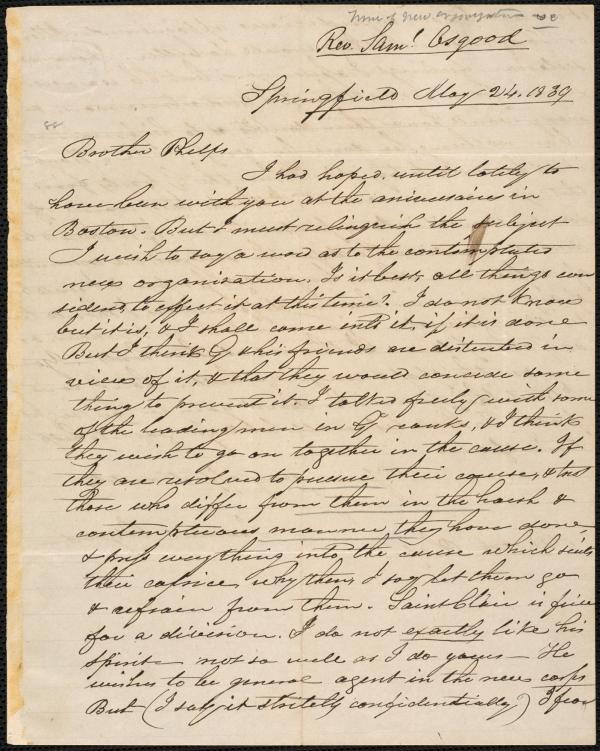 Time of new organization
Rev. Saml. Osgood
Springfield May 24. 1839
Brother Phelps
I had hoped, until lately to
have been with you at the aniversaries in
Boston. But I must relinquish the subject
I wish to say a word as to the contemplated
new organization. Is it best, all things con
sidered, to effect it at this time? I do not know
but it is, & I shall come into it, if it is done
But I think G & his friends are distressed in
view of it, & that they would concede some
thing to prevent it. I talked freely with some
of the leading men in G ranks, & I think
they wish to go on together in the cause. If
they are resolved to pursue their course, & treat
those who differ from them in the harsh &
contemptuous manner they have done
& press everything into the cause which suits
their caprice, why then, I say let them go
& refrain from them. Saint Clair is fierce
for a division. I do not exactly like his
spirit - not so well as I do yours - He
wishes to be general agent in the new corps
But (I say it strictly confidentially,) I fear